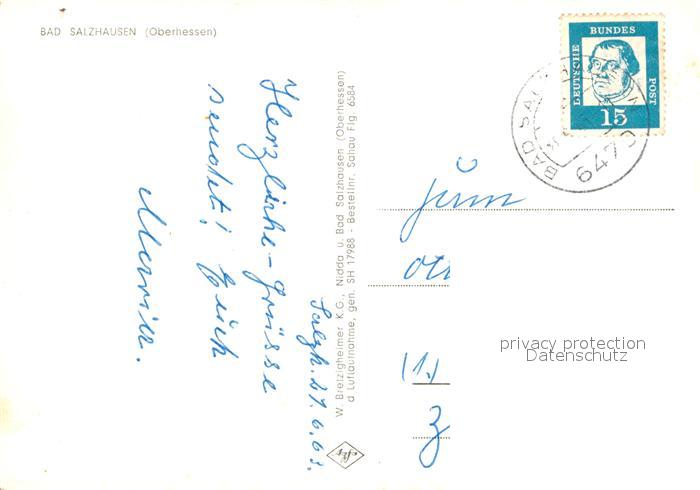 BAD SALZHAUSEN (Oberhessen)
Salzh. 27.6.63.
Herzliche-Grüsse
sendet! Euch
W. Bretzigheimer K.G., Nidda u. Bad Salzhausen (Oberhessen)
d Luftaufnahme, gen. SH 17988 - Bestellnr. Sahau Flg. 6584
DEUTSCHE BUNDES POST
15
BAD SAL
647
privacy protection
Datenschutz